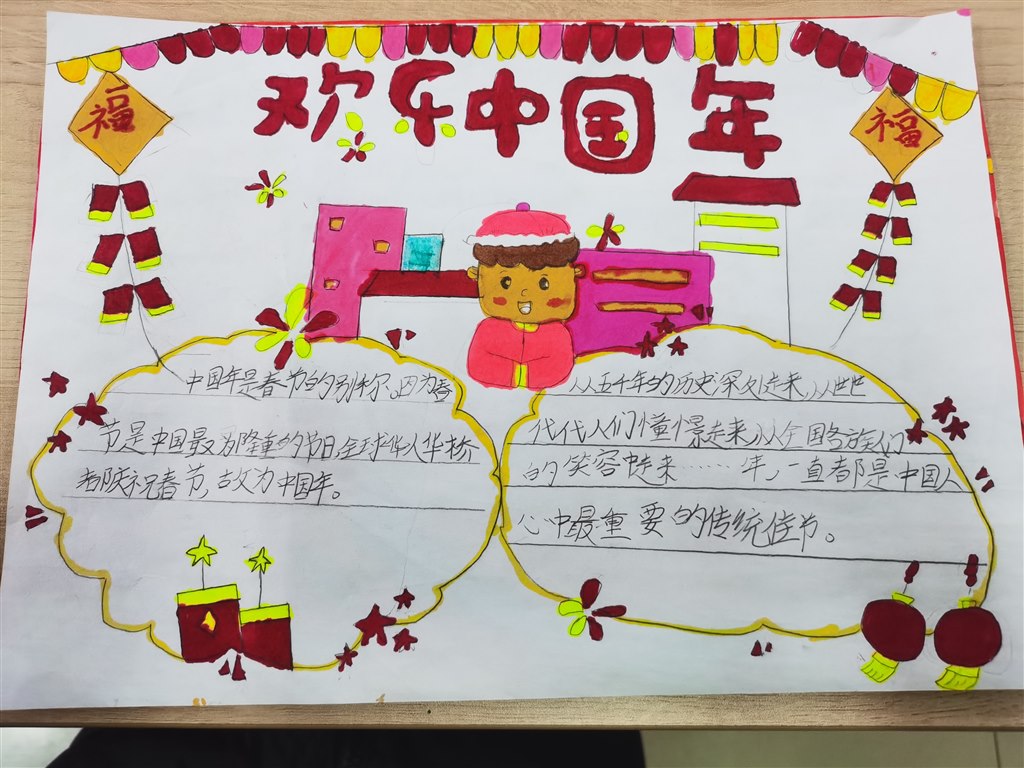 欢乐中国年
福
福
中国年是春节的别称。因为春
节是中国最为隆重的节日,全球华人华桥
都庆祝春节,故为中国年。
从五千年的历史深处走来,从世世
代代人们憧憬走来,从全国各族人们
的笑容中走来……年,一直都是中国人
心中最重要的传统佳节。